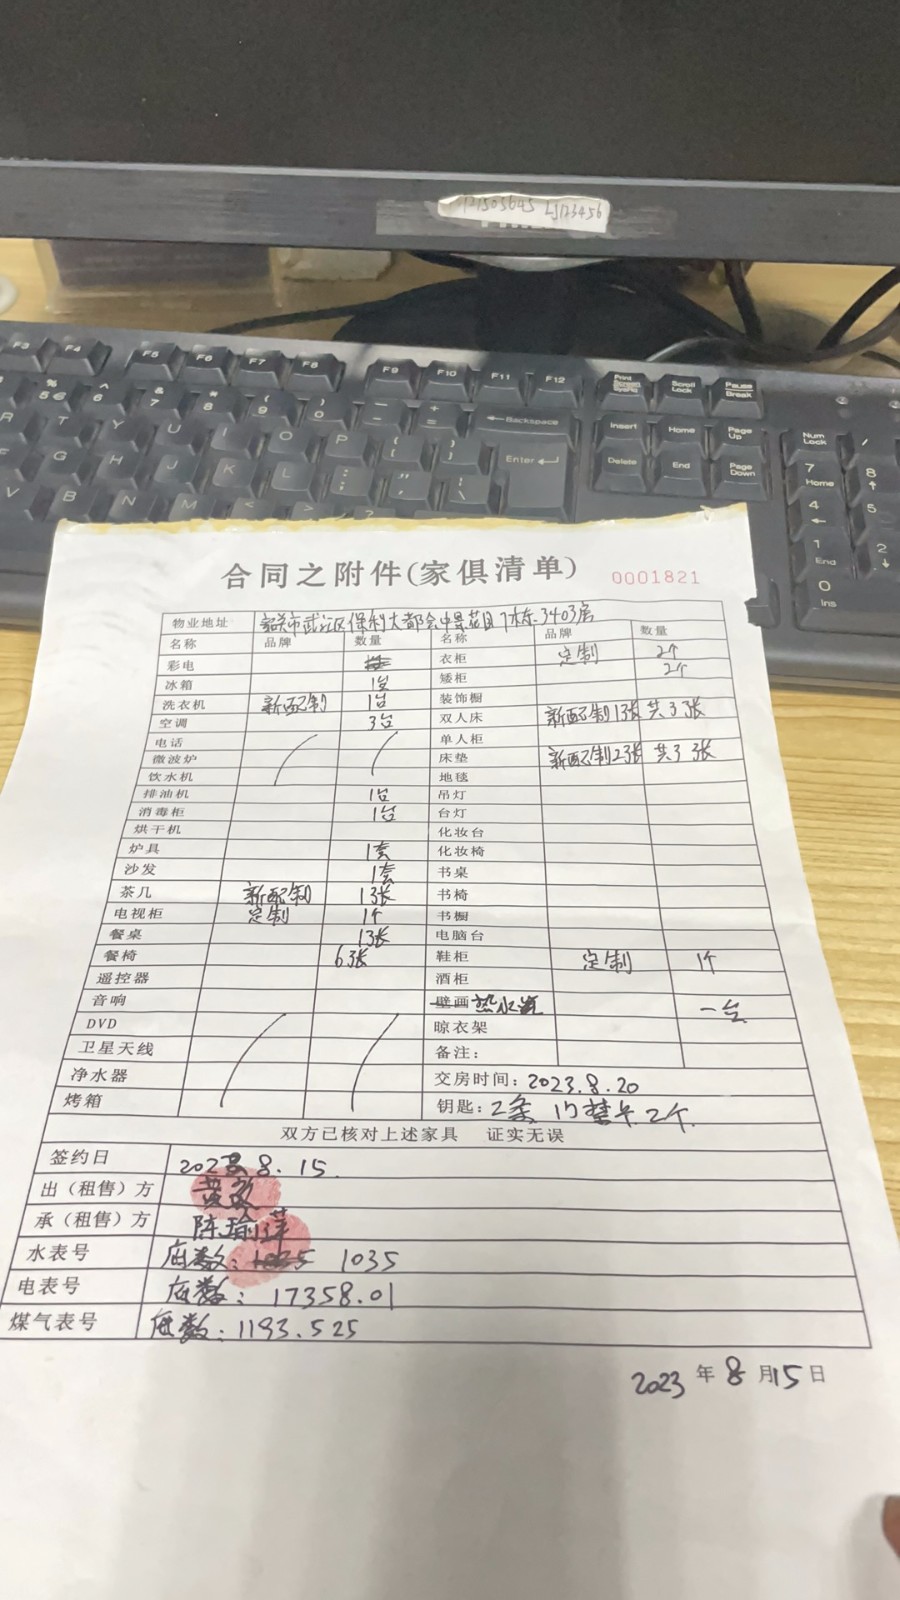 F3 F4 F5 F6 F7 F8 F9 F10 F11 F12 Print Screen SysRq Scroll Lock Pause Break
% 5 € ^ 6 & 7 * 8 ( 9 ) 0 - + = ←Backspace Insert Home Page Up Num Lock /
R T Y U I O P { [ } ] Enter Delete End Page Down 7 Home 8 ↑
F G H J K L : ; " 4 ← 5
V B N M < > ? 1 End 2 ↓
0 Ins
合同之附件(家俱清单) 0001821
物业地址 韶关市武江区保利大都会中景花园7栋3403房
名称 品牌 数量 名称 品牌 数量
彩电 衣柜 定制 2个
冰箱 1台 矮柜 2个
洗衣机 新配制 1台 装饰橱
空调 3台 双人床 新配制1张 共3张
电话 单人柜
微波炉 床垫 新配制2张 共3张
饮水机 地毯
排油机 1台 吊灯
消毒柜 1台 台灯
烘干机 化妆台
炉具 1套 化妆椅
沙发 1套 书桌
茶几 新配制 1张 书椅
电视柜 定制 1个 书橱
餐桌 1张 电脑台
餐椅 6张 鞋柜 定制 1个
遥控器 酒柜
音响 壁画 热水器 一台
DVD 晾衣架
卫星天线 备注:
净水器 交房时间: 2023.8.20
烤箱 钥匙: 2条 门禁卡2个
双方已核对上述家具 证实无误
签约日 2023.8.15.
出(租售)方
承(租售)方 陈瑜萍
水表号 底数: 1035
电表号 底数: 17358.01
煤气表号 底数: 1193.525
2023 年 8 月 15 日